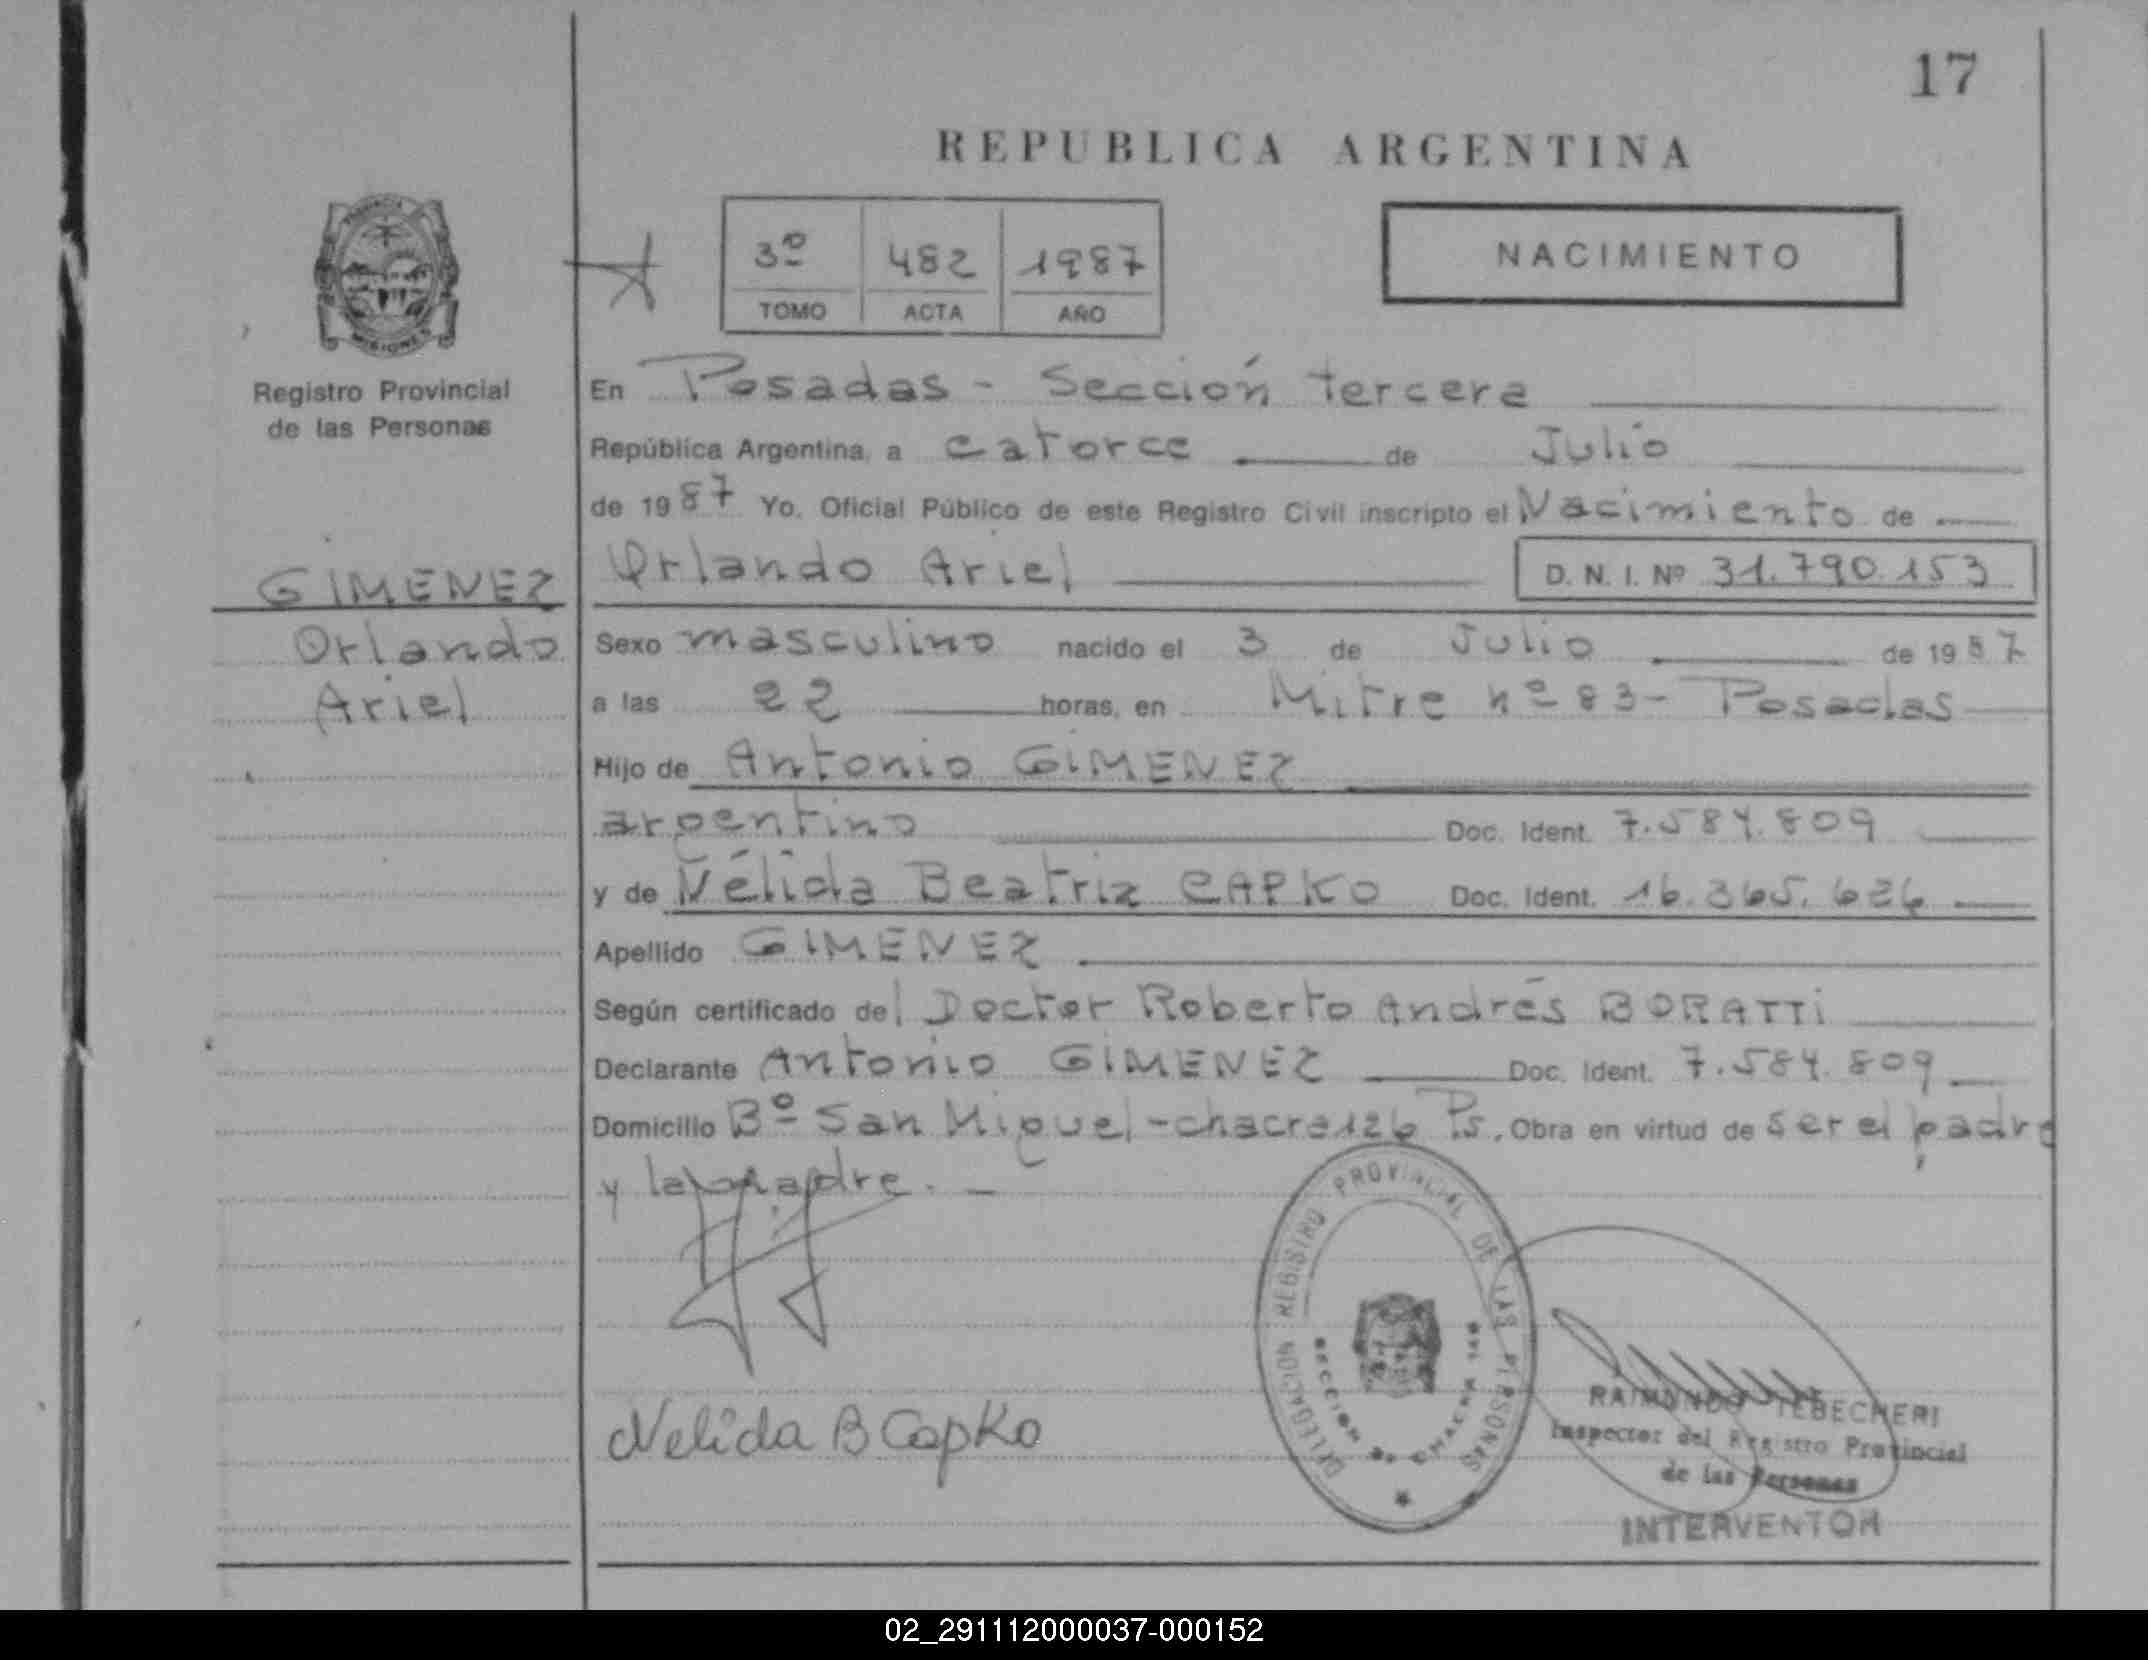 17
REPUBLICA ARGENTINA
3º 482 1987
TOMO ACTA AÑO
NACIMIENTO
PROVINCIA
MISIONES
Registro Provincial
de las Personas
GIMENEZ
Orlando
Ariel
En Posadas - Sección tercera
República Argentina, a catorce de Julio
de 1987 Yo. Oficial Público de este Registro Civil inscripto el Nacimiento de
Orlando Ariel D. N. I. Nº 31.790.153
Sexo masculino nacido el 3 de Julio de 1987
a las 22 horas, en Mitre nº 83- Posadas
Hijo de Antonio GIMENEZ
argentino Doc. Ident. 7.584.809
y de Nélida Beatriz CAPKO Doc. Ident. 16.365.626
Apellido GIMENEZ
Según certificado del Doctor Roberto Andrés BORATTI
Declarante Antonio GIMENEZ Doc. Ident. 7.584.809
Domicilio Bº San Miguel-chacra 126 Ps. Obra en virtud de ser el padre
y la madre. -
Nelida B Capko
DELEGACION REGISTRO PROVINCIAL DE LAS PERSONAS
SECCION
RAIMUNDO TEBECHERI
Inspector del Registro Provincial
de las Personas
INTERVENTOR
02_291112000037-000152